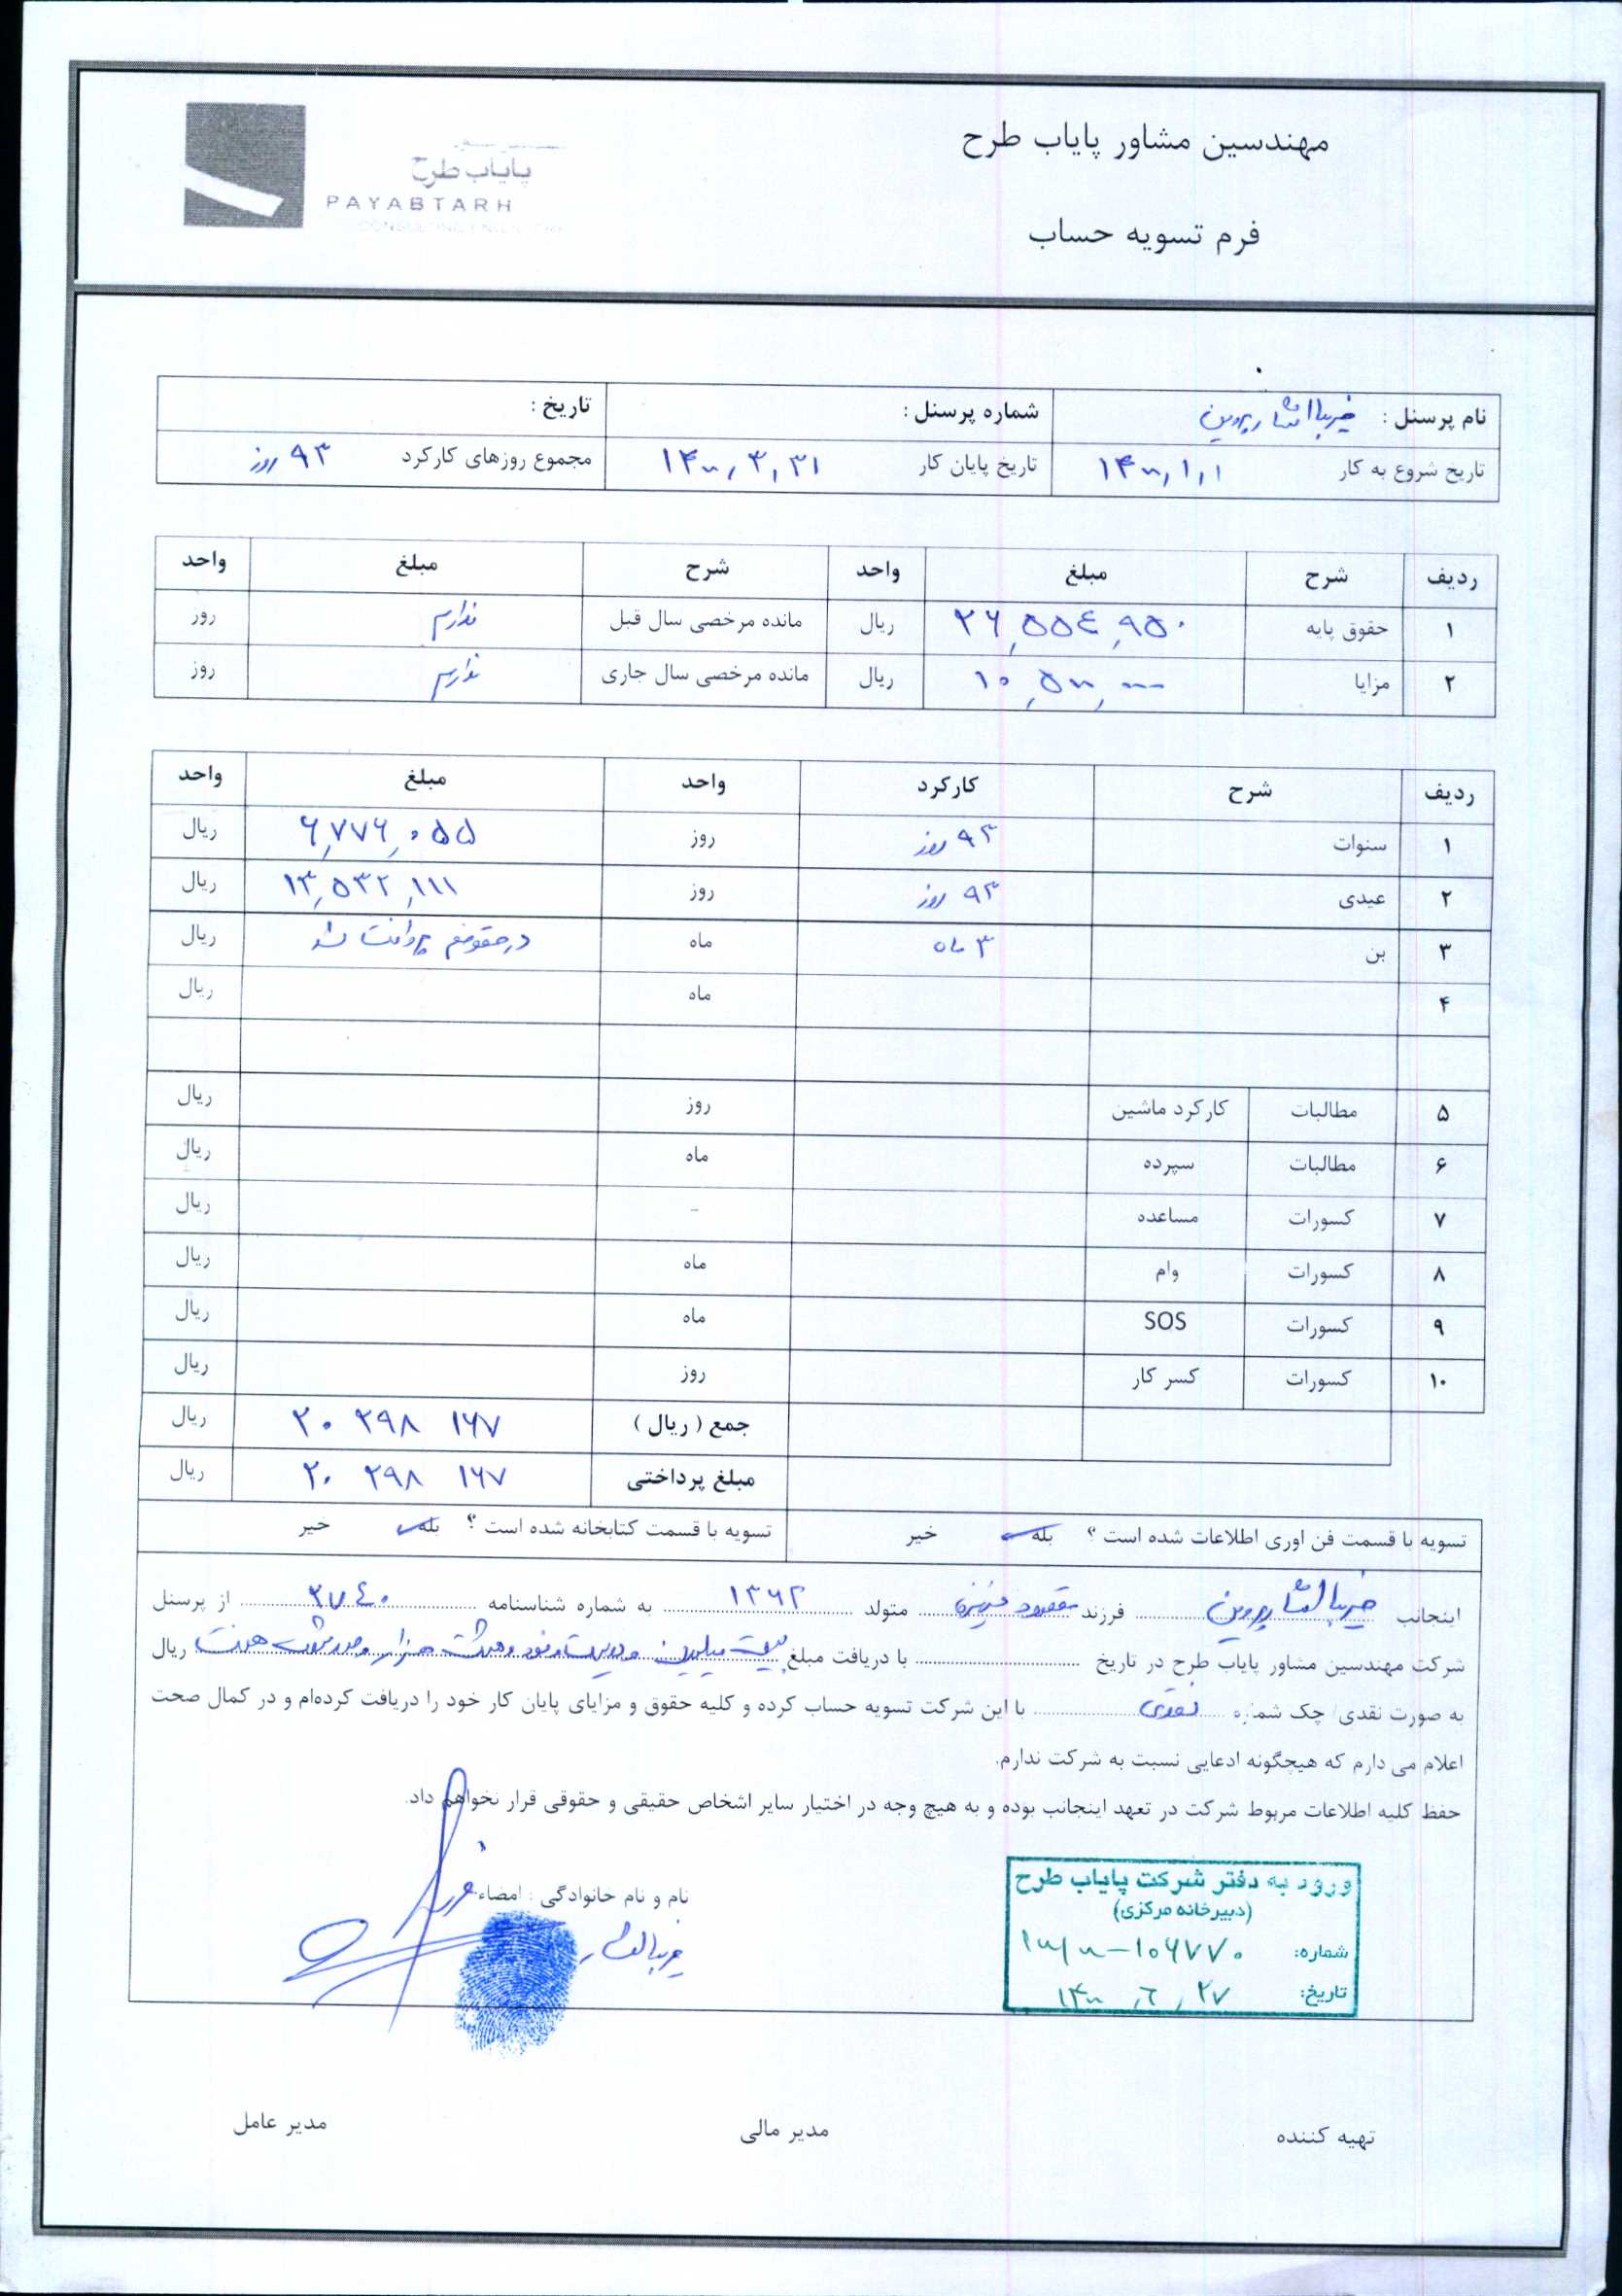 مهندسین مشاور پایاب طرح
فرم تسویه حساب
پایاب طرح
PAYABTARH
نام پرسنل : شماره پرسنل : تاریخ :
تاریخ شروع به کار ۱۴۰۰,۱,۱ تاریخ پایان کار ۱۴۰۰,۳,۳۱ مجموع روزهای کارکرد ۹۳ روز
ردیف شرح مبلغ واحد شرح مبلغ واحد
۱ حقوق پایه ۲۶,۵۵۴,۹۵۰ ریال مانده مرخصی سال قبل ندارم روز
۲ مزایا ۱۰,۵۰۰,۰۰۰ ریال مانده مرخصی سال جاری ندارم روز
ردیف شرح کارکرد واحد مبلغ واحد
۱ سنوات ۹۳ روز روز ۶,۷۷۶,۰۵۵ ریال
۲ عیدی ۹۳ روز روز ۱۳,۵۳۲,۱۱۱ ریال
۳ بن ۳ ماه ماه در حقوقم پرداخت شد ریال
۴ ماه ریال
۵ مطالبات کارکرد ماشین روز ریال
۶ مطالبات سپرده ماه ریال
۷ کسورات مساعده - ریال
۸ کسورات وام ماه ریال
۹ کسورات SOS ماه ریال
۱۰ کسورات کسر کار روز ریال
جمع ( ریال ) ۲۰ ۲۹۸ ۱۶۷ ریال
مبلغ پرداختی ۲۰ ۲۹۸ ۱۶۷ ریال
تسویه با قسمت فن اوری اطلاعات شده است ؟ بله خیر تسویه با قسمت کتابخانه شده است ؟ بله خیر
اینجانب فرزند متولد ۱۳۶۲ به شماره شناسنامه ۳۷۴۰ از پرسنل
شرکت مهندسین مشاور پایاب طرح در تاریخ با دریافت مبلغ بیست میلیون و دویست و نود و هشت هزار و صد و شصت و هفت ریال
به صورت نقدی/ چک شماره نقدی با این شرکت تسویه حساب کرده و کلیه حقوق و مزایای پایان کار خود را دریافت کرده‌ام و در کمال صحت
اعلام می دارم که هیچگونه ادعایی نسبت به شرکت ندارم.
حفظ کلیه اطلاعات مربوط شرکت در تعهد اینجانب بوده و به هیچ وجه در اختیار سایر اشخاص حقیقی و حقوقی قرار نخواهم داد.
نام و نام خانوادگی : امضاء:
ورود به دفتر شرکت پایاب طرح
(دبیرخانه مرکزی)
شماره:
تاریخ: ۱۴۰۰,۶,۲۷
تهیه کننده مدیر مالی مدیر عامل